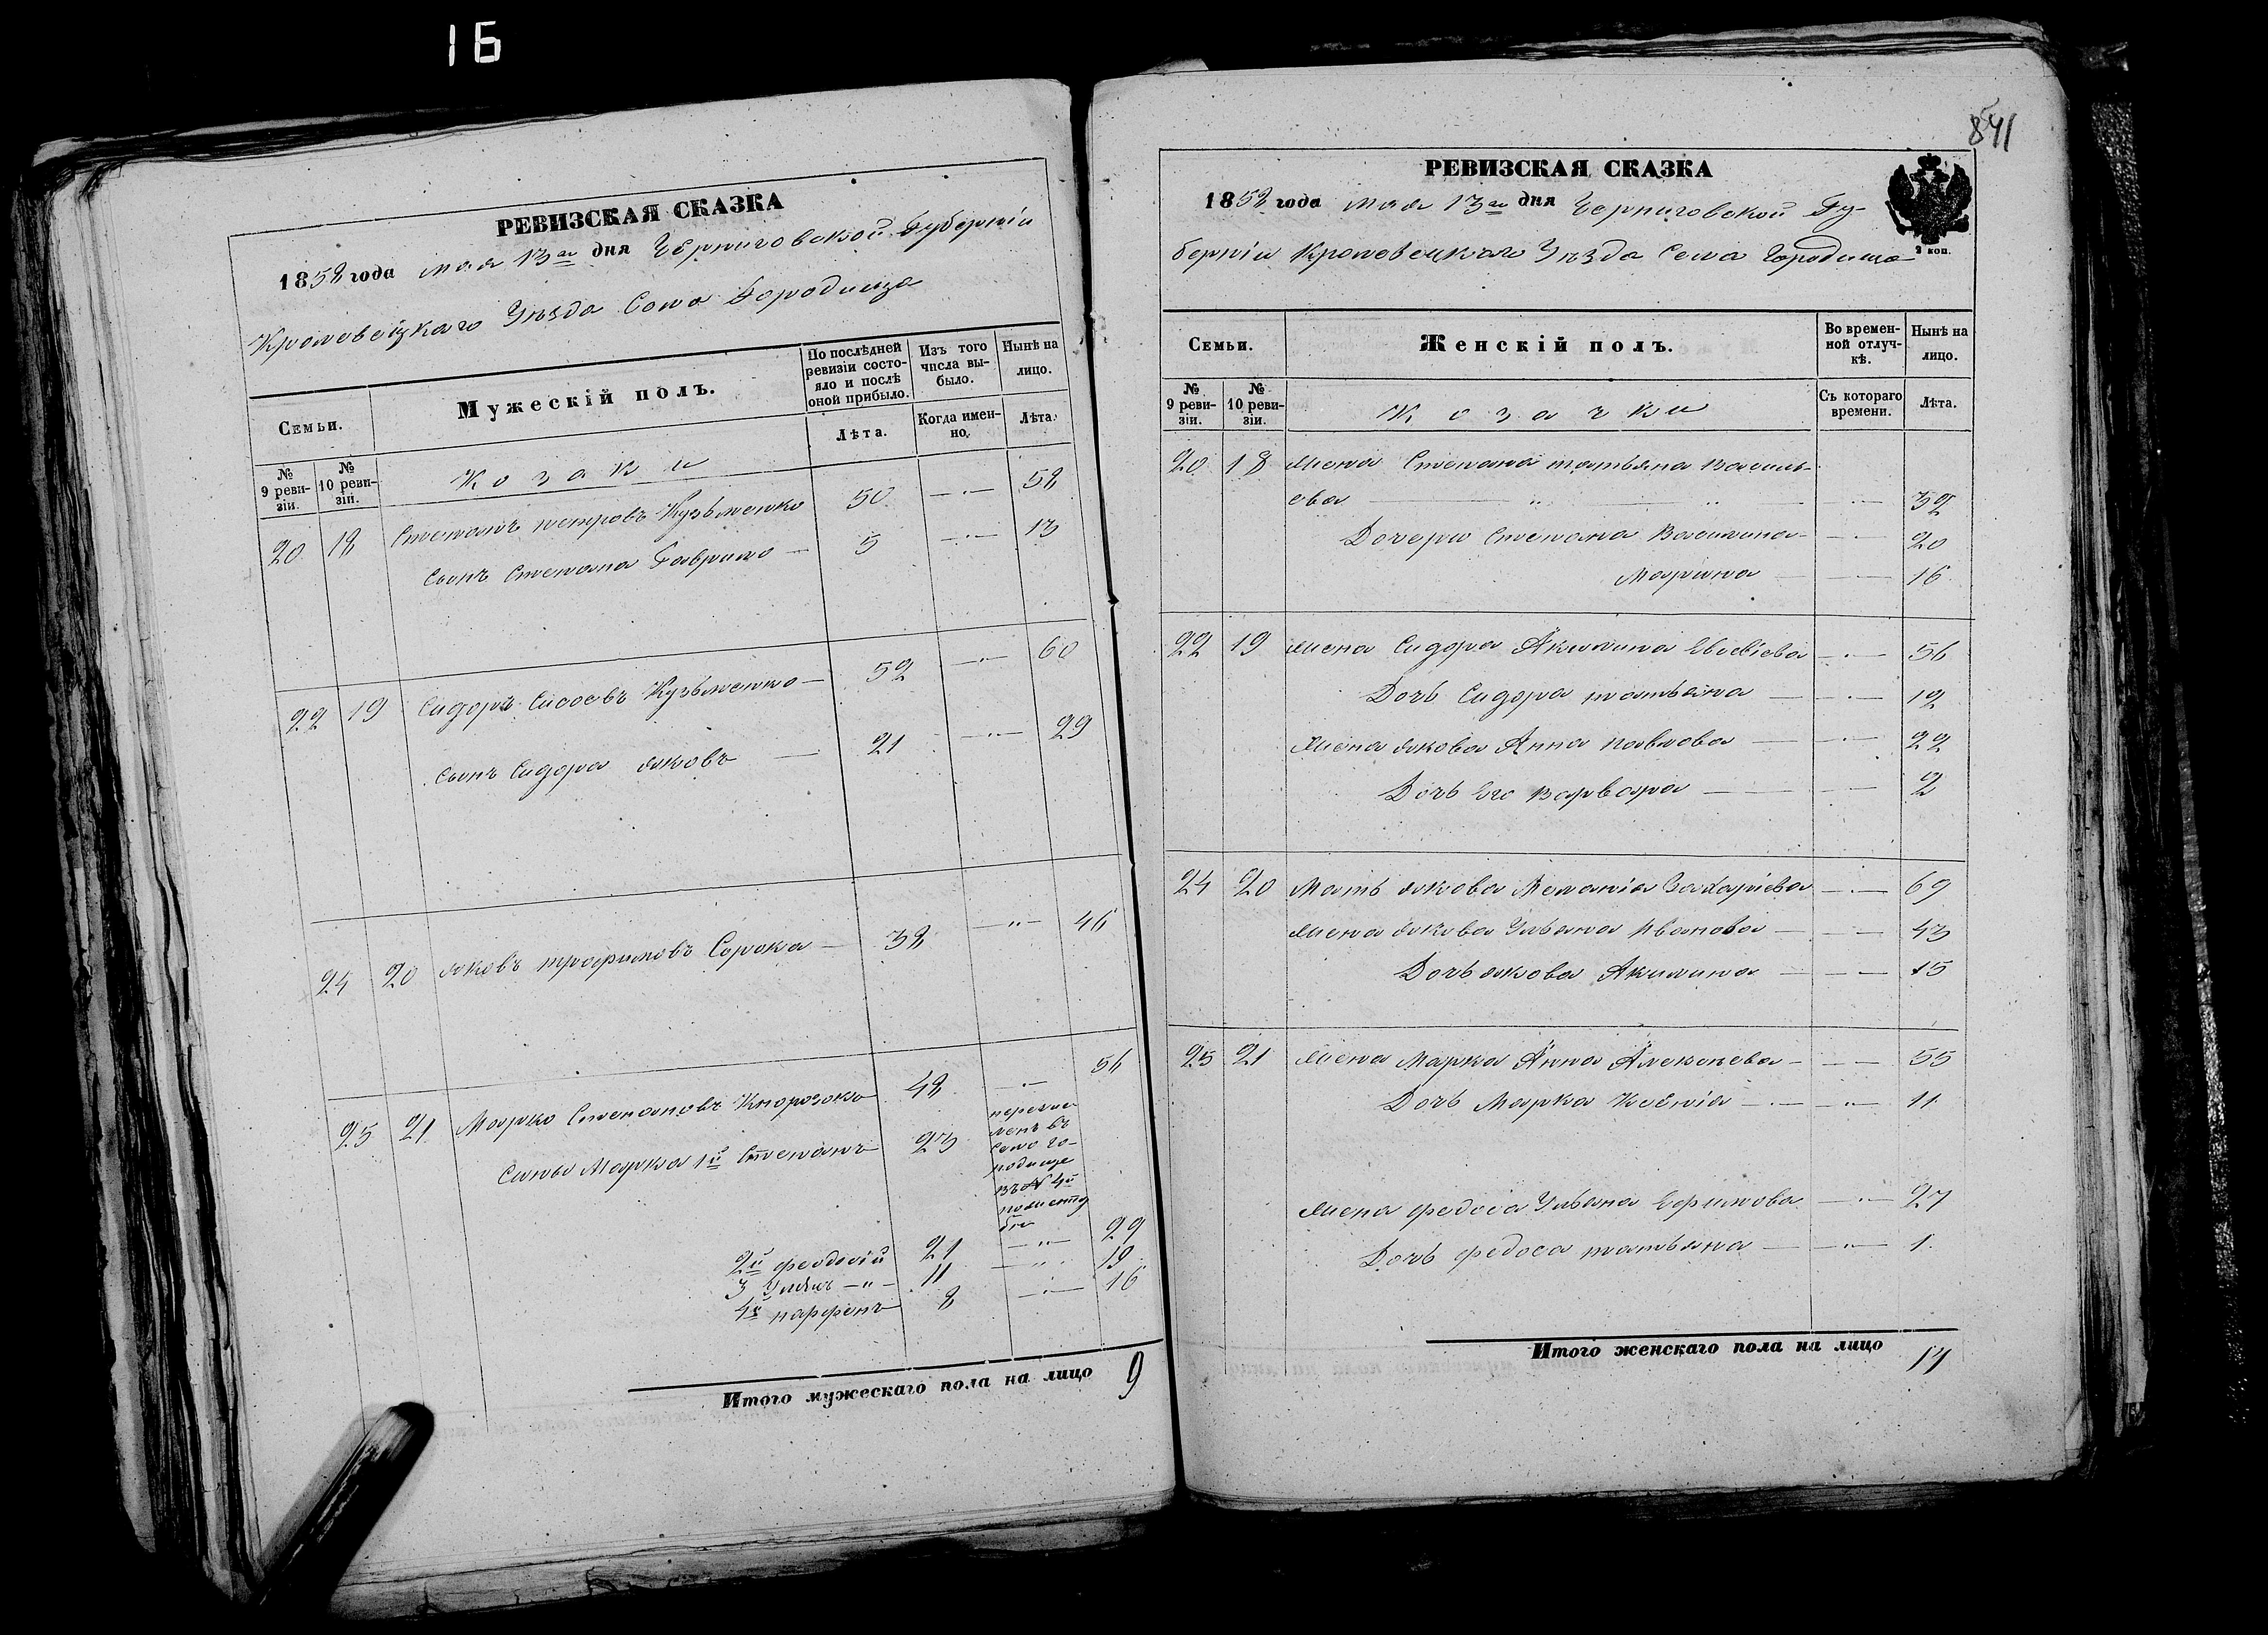 16
РЕВИЗСКАЯ СКАЗКА
1858 года мая 13го дня Черниговской Губерніи
Кролевецкаго Уѣзда Села Городища
Семьи.
Мужескій полъ.
По послѣдней ревизіи состояло и послѣ оной прибыло.
Изъ того числа выбыло.
Нынѣ на лицо.
№ 9 ревизіи.
№ 10 ревизіи.
Козаки
Лѣта.
Когда именно.
Лѣта.
20 18 Степанъ петровъ Кузьменко 50 —"— 58
сынъ Степана Гаврило — 5 —"— 13
22 19 Сидоръ Сисоевъ Кузьменко — 52 —"— 60
сынъ Сидора яковъ — 21 —"— 29
24 20 яковъ трофимовъ Сорока — 38 —"— 46
25 21 Марко Степановъ 48 —"— 56
Сыны Марка 1й Степанъ 23
перечис
ленъ въ
село Го-
родище
въ № 4й
2й феодосій 21 —"— 29
3 —"— 11 —"— 19
4й парфенъ 8 —"— 16
Итого мужескаго пола на лицо 9
841
РЕВИЗСКАЯ СКАЗКА
1858 года мая 13го дня Черниговской Гу-
берніи Кролевецкаго Уѣзда Села Городища
2 коп.
Семьи.
Женскій полъ.
Во временной отлучкѣ.
Нынѣ на лицо.
№ 9 ревизіи.
№ 10 ревизіи.
Козачки
Съ котораго времени.
Лѣта.
20 18 Жена Степана татьяна Василь-
ева — " — " — —"— 32
Дочери Степана Василина — —"— 20
Марина — —"— 16
22 19 Жена Сидора Акилина Евсевіева —"— 56
Дочь Сидора татьяна — —"— 12
Жена якова Анна павлова — —"— 22
Дочь Его варвара — —"— 2
24 20 Мать якова Меланія Захаріева —"— 69
Жена якова Ульяна Иванова — —"— 43
Дочь якова Акилина — —"— 15
25 21 Жена Марка Анна Алексѣева — —"— 55
Дочь Марка Ксенія — —"— 11
Жена федоса Ульяна Ефимова —"— 27
Дочь федоса татьяна — —"— 1
Итого женскаго пола на лицо 14